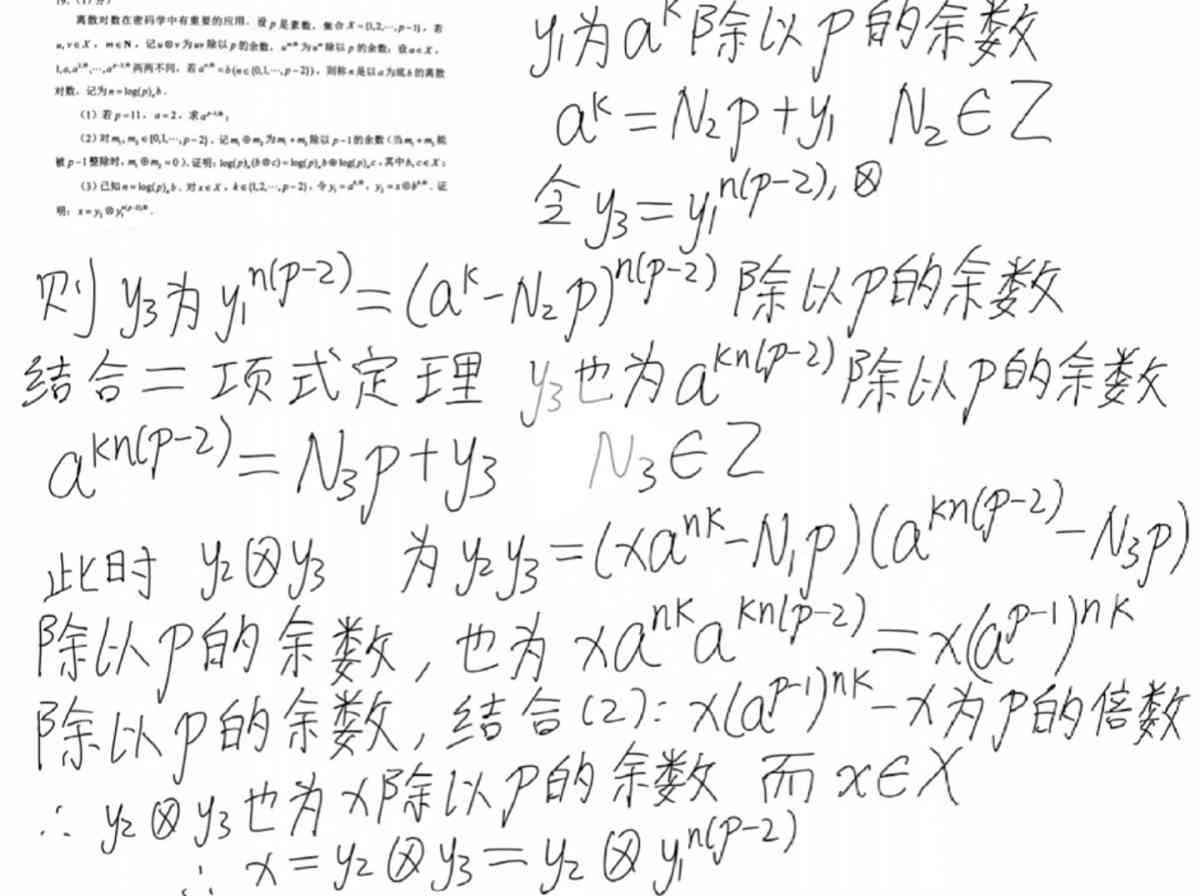 19.（17分）
离散对数在密码学中有重要的应用。设p是素数，集合X={1,2,⋯,p-1}，若
u,v∈X，m∈N，记u⊗v为uv除以p的余数，u^{m,⊗}为u^m除以p的余数；设a∈X，
1,a,a^{2,⊗},⋯,a^{p-2,⊗}两两不同，若a^{n,⊗}=b(n∈{0,1,⋯,p-2})，则称n是以a为底b的离散
对数，记为n=log(p)_a b。
（1）若p=11，a=2，求a^{p-1,⊗}；
（2）对m₁,m₂∈{0,1,⋯,p-2}，记m₁⊕m₂为m₁+m₂除以p-1的余数（当m₁+m₂能
被p-1整除时，m₁⊕m₂=0）。证明：log(p)_a(b⊗c)=log(p)_a b⊕log(p)_a c，其中b,c∈X；
（3）已知n=log(p)_a b。对x∈X，k∈{1,2,⋯,p-2}，令y₁=a^{k,⊗}，y₂=x⊗b^{k,⊗}。证
明：x=y₂⊗y₁^{n(p-2),⊗}。
y₁为a^k除以p的余数
a^k=N₂p+y₁ N₂∈Z
令y₃=y₁^{n(p-2),⊗}
则y₃为y₁^{n(p-2)}=(a^k-N₂p)^{n(p-2)}除以p的余数
结合二项式定理 y₃也为a^{kn(p-2)}除以p的余数
a^{kn(p-2)}=N₃p+y₃ N₃∈Z
此时 y₂⊗y₃ 为y₂y₃=(xa^{nk}-N₁p)(a^{kn(p-2)}-N₃p)
除以p的余数，也为xa^{nk}a^{kn(p-2)}=x(a^{p-1})^{nk}
除以p的余数，结合(2)：x(a^{p-1})^{nk}-x为p的倍数
∴ y₂⊗y₃也为x除以p的余数 而x∈X
∴ x=y₂⊗y₃=y₂⊗y₁^{n(p-2)}